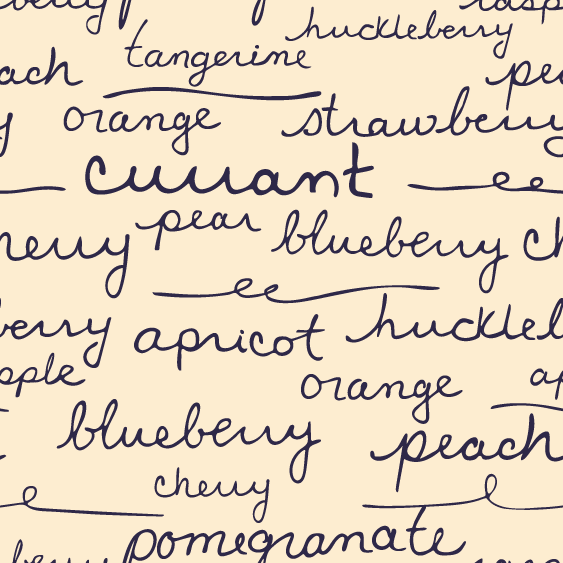 huckleberry
tangerine
ach pea
orange strawberry
currant
pear
herry blueberry ch
berry apricot huckleb
pple orange ap
blueberry peach
cherry
pomegranate